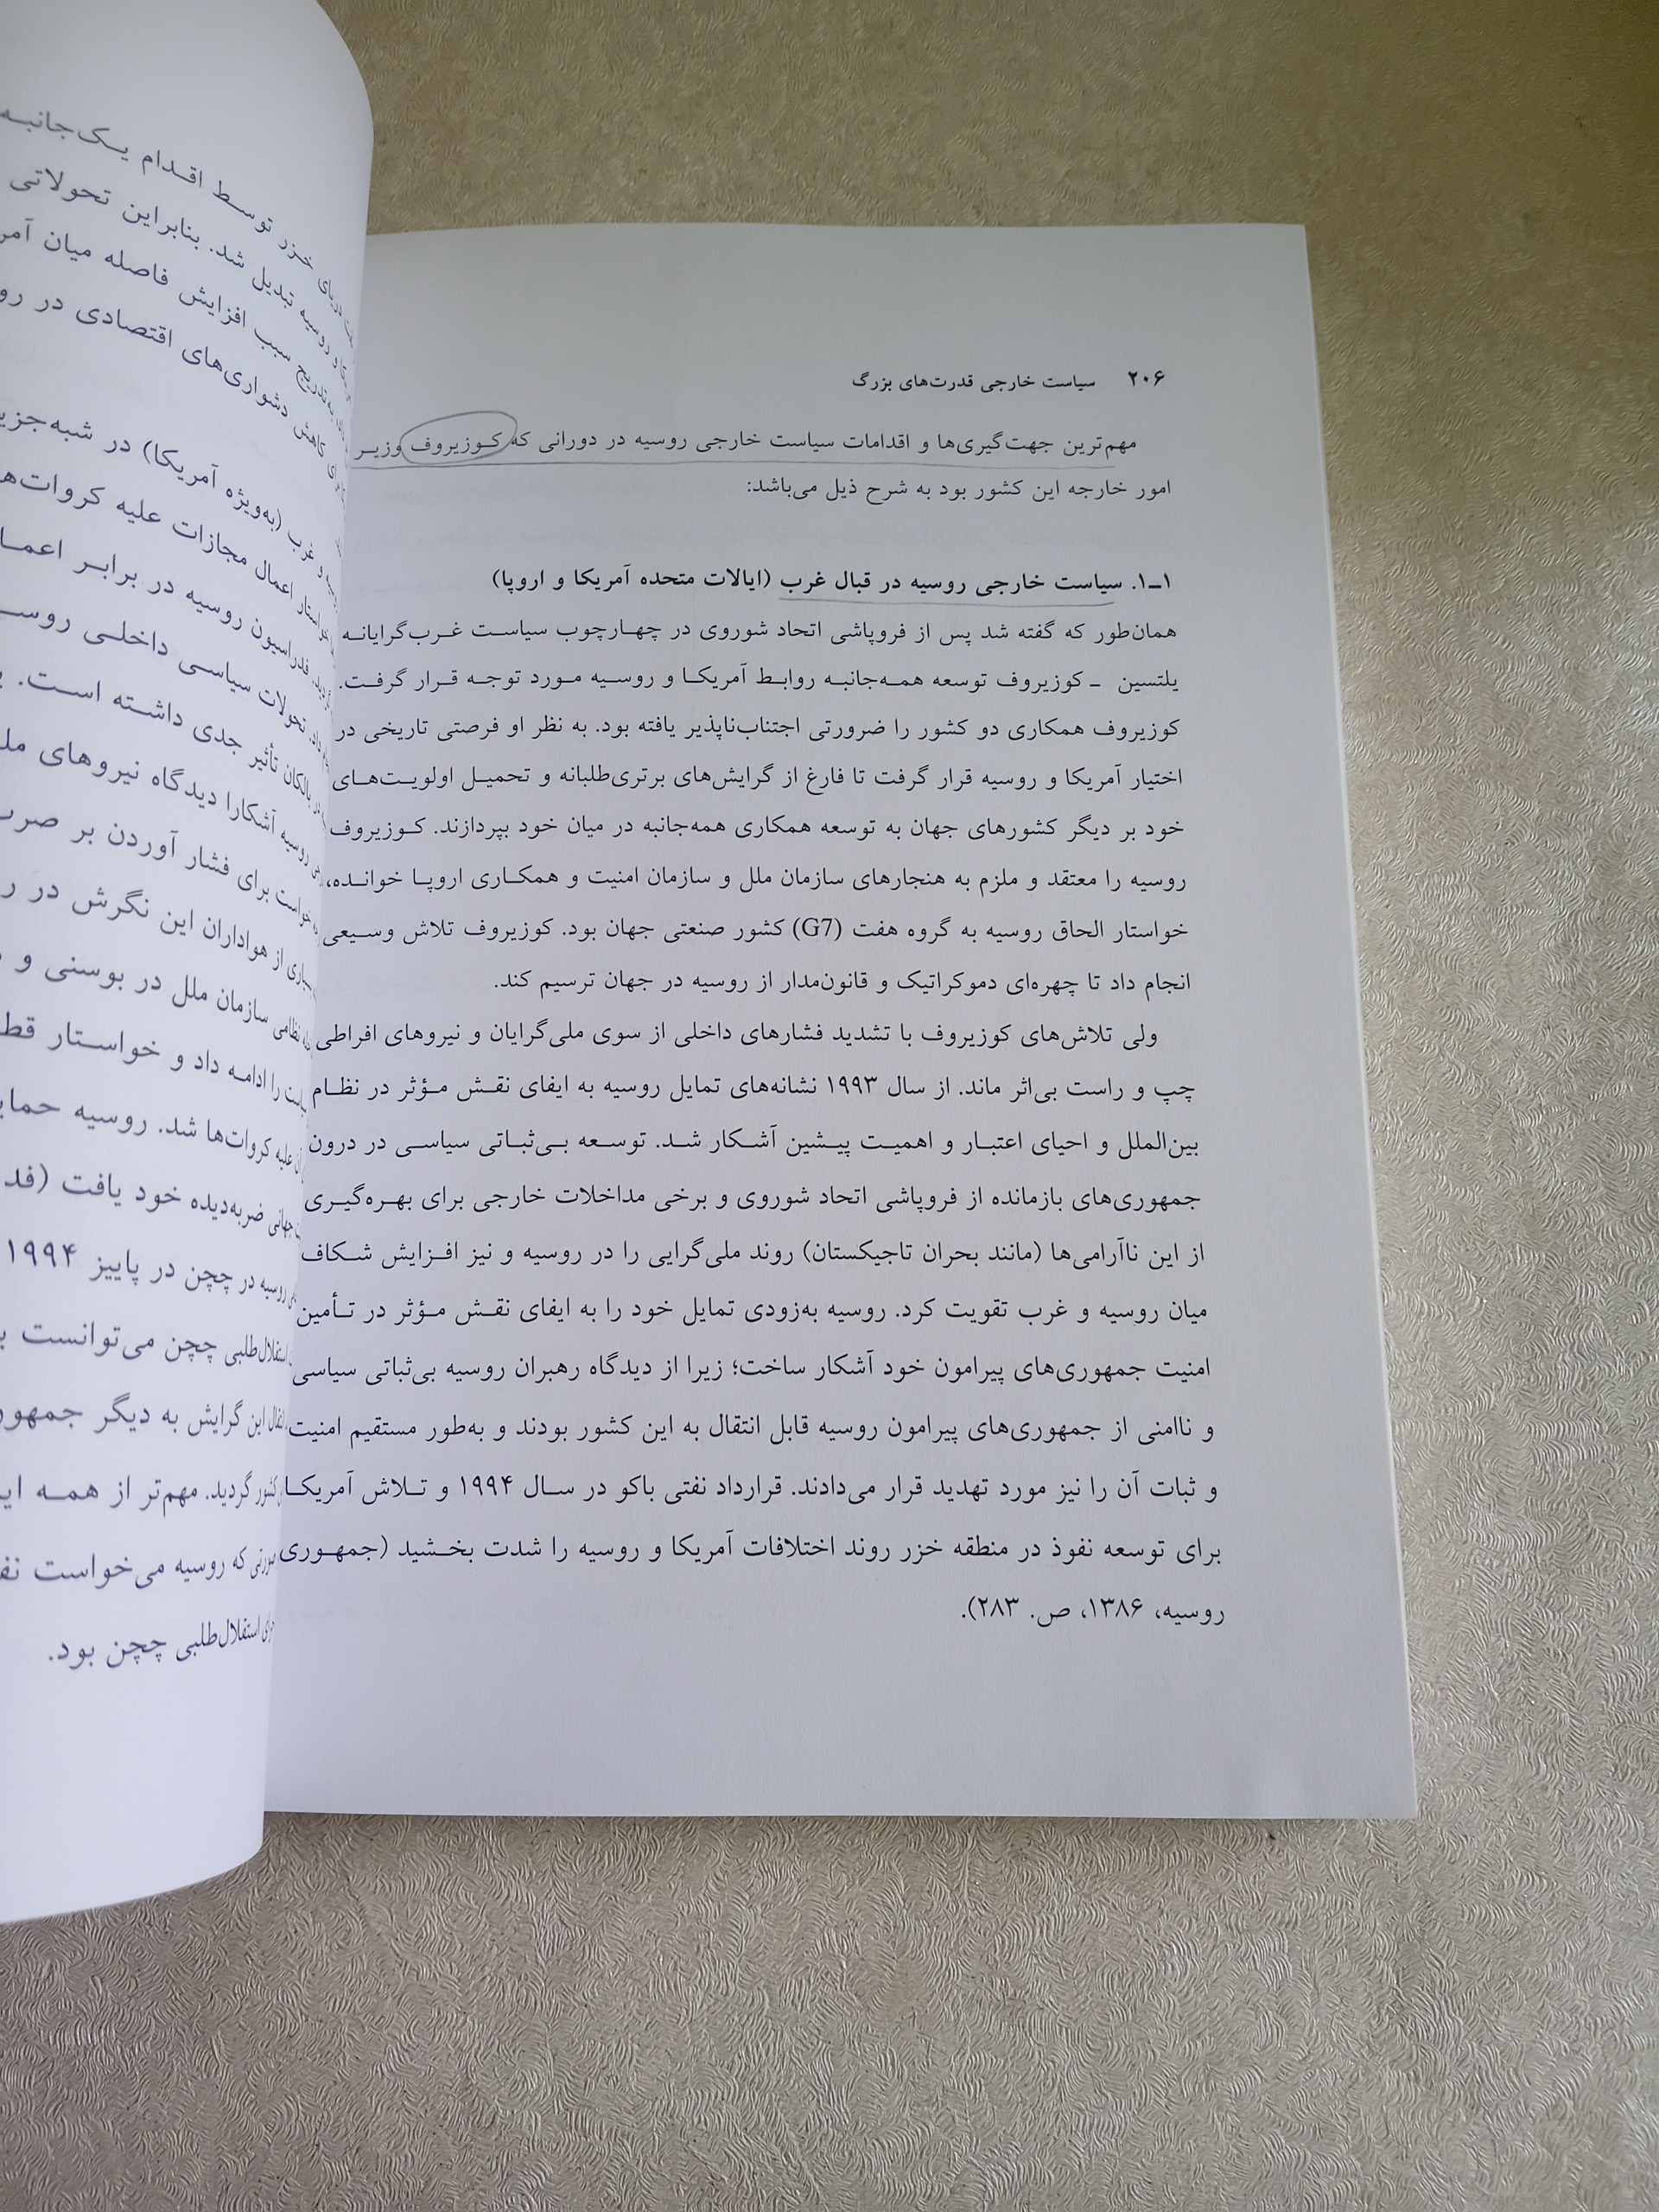 ۲۰۶ سیاست خارجی قدرت‌های بزرگ
مهم‌ترین جهت‌گیری‌ها و اقدامات سیاست خارجی روسیه در دورانی که کوزیروف وزیر
امور خارجه این کشور بود به شرح ذیل می‌باشد:
۱ـ۱. سیاست خارجی روسیه در قبال غرب (ایالات متحده آمریکا و اروپا)
همان‌طور که گفته شد پس از فروپاشی اتحاد شوروی در چهارچوب سیاست غرب‌گرایانه
یلتسین ـ کوزیروف توسعه همه‌جانبه روابط آمریکا و روسیه مورد توجه قرار گرفت.
کوزیروف همکاری دو کشور را ضرورتی اجتناب‌ناپذیر یافته بود. به نظر او فرصتی تاریخی در
اختیار آمریکا و روسیه قرار گرفت تا فارغ از گرایش‌های برتری‌طلبانه و تحمیل اولویت‌های
خود بر دیگر کشورهای جهان به توسعه همکاری همه‌جانبه در میان خود بپردازند. کوزیروف
روسیه را معتقد و ملزم به هنجارهای سازمان ملل و سازمان امنیت و همکاری اروپا خوانده،
خواستار الحاق روسیه به گروه هفت (G7) کشور صنعتی جهان بود. کوزیروف تلاش وسیعی
انجام داد تا چهره‌ای دموکراتیک و قانون‌مدار از روسیه در جهان ترسیم کند.
ولی تلاش‌های کوزیروف با تشدید فشارهای داخلی از سوی ملی‌گرایان و نیروهای افراطی
چپ و راست بی‌اثر ماند. از سال ۱۹۹۳ نشانه‌های تمایل روسیه به ایفای نقش مؤثر در نظام
بین‌الملل و احیای اعتبار و اهمیت پیشین آشکار شد. توسعه بی‌ثباتی سیاسی در درون
جمهوری‌های بازمانده از فروپاشی اتحاد شوروی و برخی مداخلات خارجی برای بهره‌گیری
از این ناآرامی‌ها (مانند بحران تاجیکستان) روند ملی‌گرایی را در روسیه و نیز افزایش شکاف
میان روسیه و غرب تقویت کرد. روسیه به‌زودی تمایل خود را به ایفای نقش مؤثر در تأمین
امنیت جمهوری‌های پیرامون خود آشکار ساخت؛ زیرا از دیدگاه رهبران روسیه بی‌ثباتی سیاسی
و ناامنی از جمهوری‌های پیرامون روسیه قابل انتقال به این کشور بودند و به‌طور مستقیم امنیت
و ثبات آن را نیز مورد تهدید قرار می‌دادند. قرارداد نفتی باکو در سال ۱۹۹۴ و تلاش آمریکا
برای توسعه نفوذ در منطقه خزر روند اختلافات آمریکا و روسیه را شدت بخشید (جمهوری
روسیه، ۱۳۸۶، ص. ۲۸۳).
دریای خزر توسط اقدام یک‌جانبه
روسیه تبدیل شد. بنابراین تحولاتی
به‌تدریج سبب افزایش فاصله میان
کاهش دشواری‌های اقتصادی در
غرب (به‌ویژه آمریکا) در
خواستار اعمال مجازات علیه
فدراسیون روسیه در برابر
تحولات سیاسی داخلی
بالکان تأثیر جدی داشته است.
روسیه آشکارا دیدگاه نیروهای
خواست برای فشار آوردن بر
از هواداران این نگرش در
نظامی سازمان ملل در بوسنی و
را ادامه داد و خواستار
علیه کروات‌ها شد. روسیه
جهانی ضربه‌دیده خود یافت
روسیه در چچن در پاییز ۱۹۹۴
استقلال‌طلبی چچن می‌توانست
این گرایش به دیگر
کشور گردید. مهم‌تر از همه
که روسیه می‌خواست
استقلال‌طلبی چچن بود.